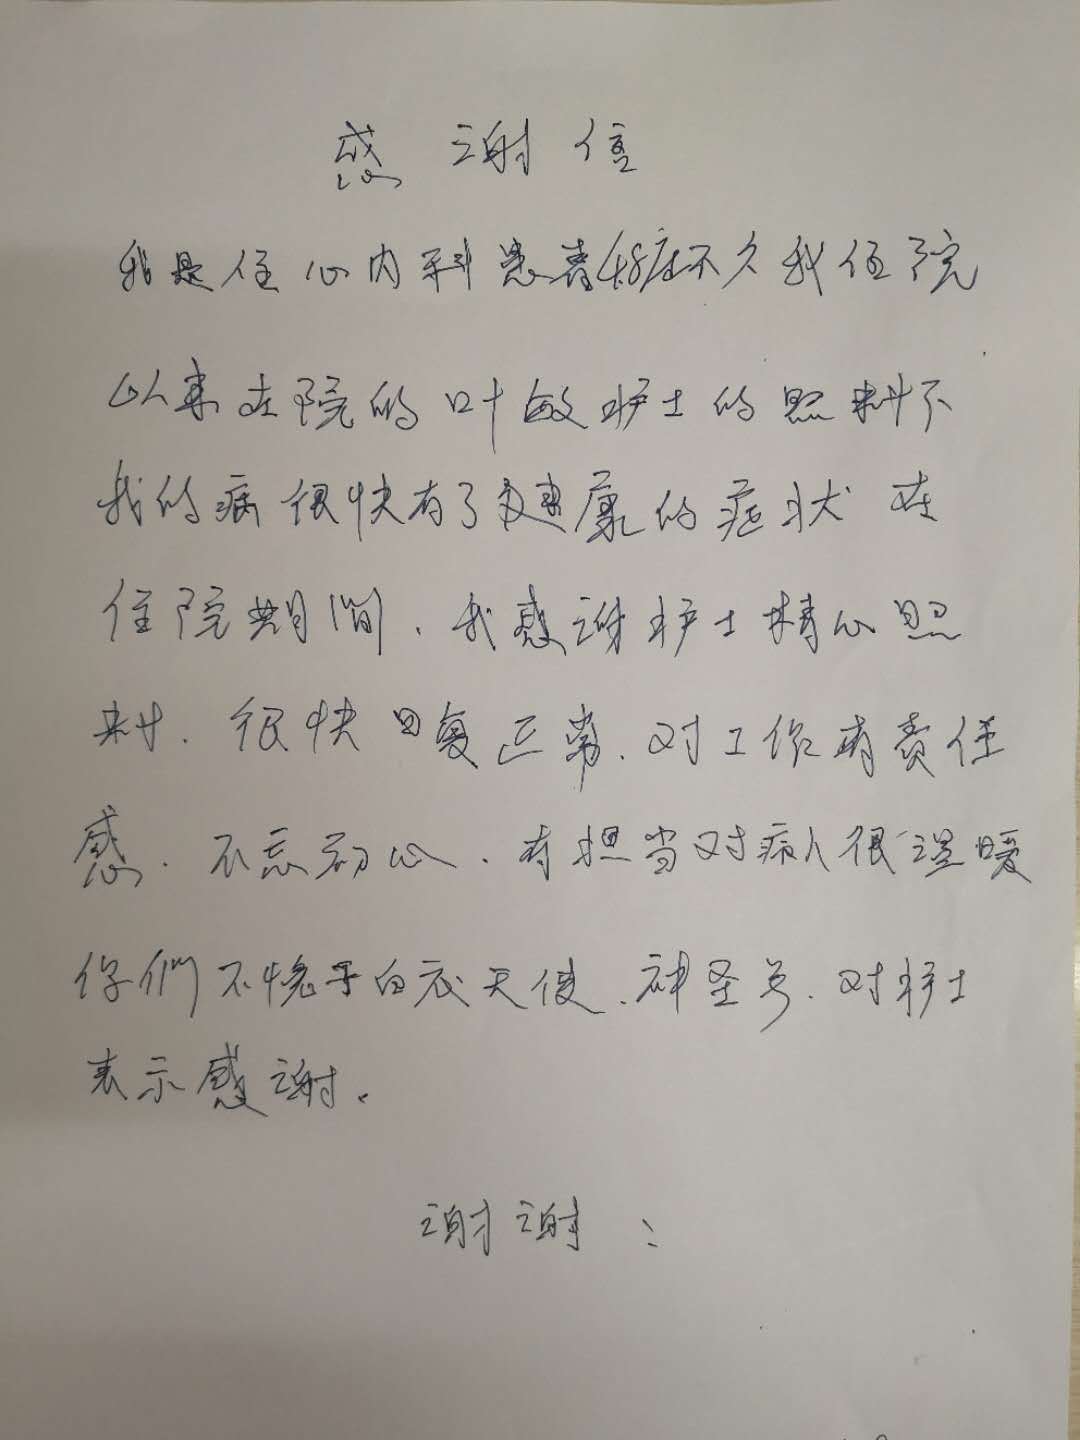 感谢信
我是住心内科患者48床不久我住院
以来在院的叶敏护士的照料下
我的病很快有了健康的症状 在
住院期间、我感谢护士精心照
料、很快回复正常、对工作有责任
感、不忘初心、有担当对病人很温暖
你们不愧于白衣天使、神圣号、对护士
表示感谢、
谢谢：